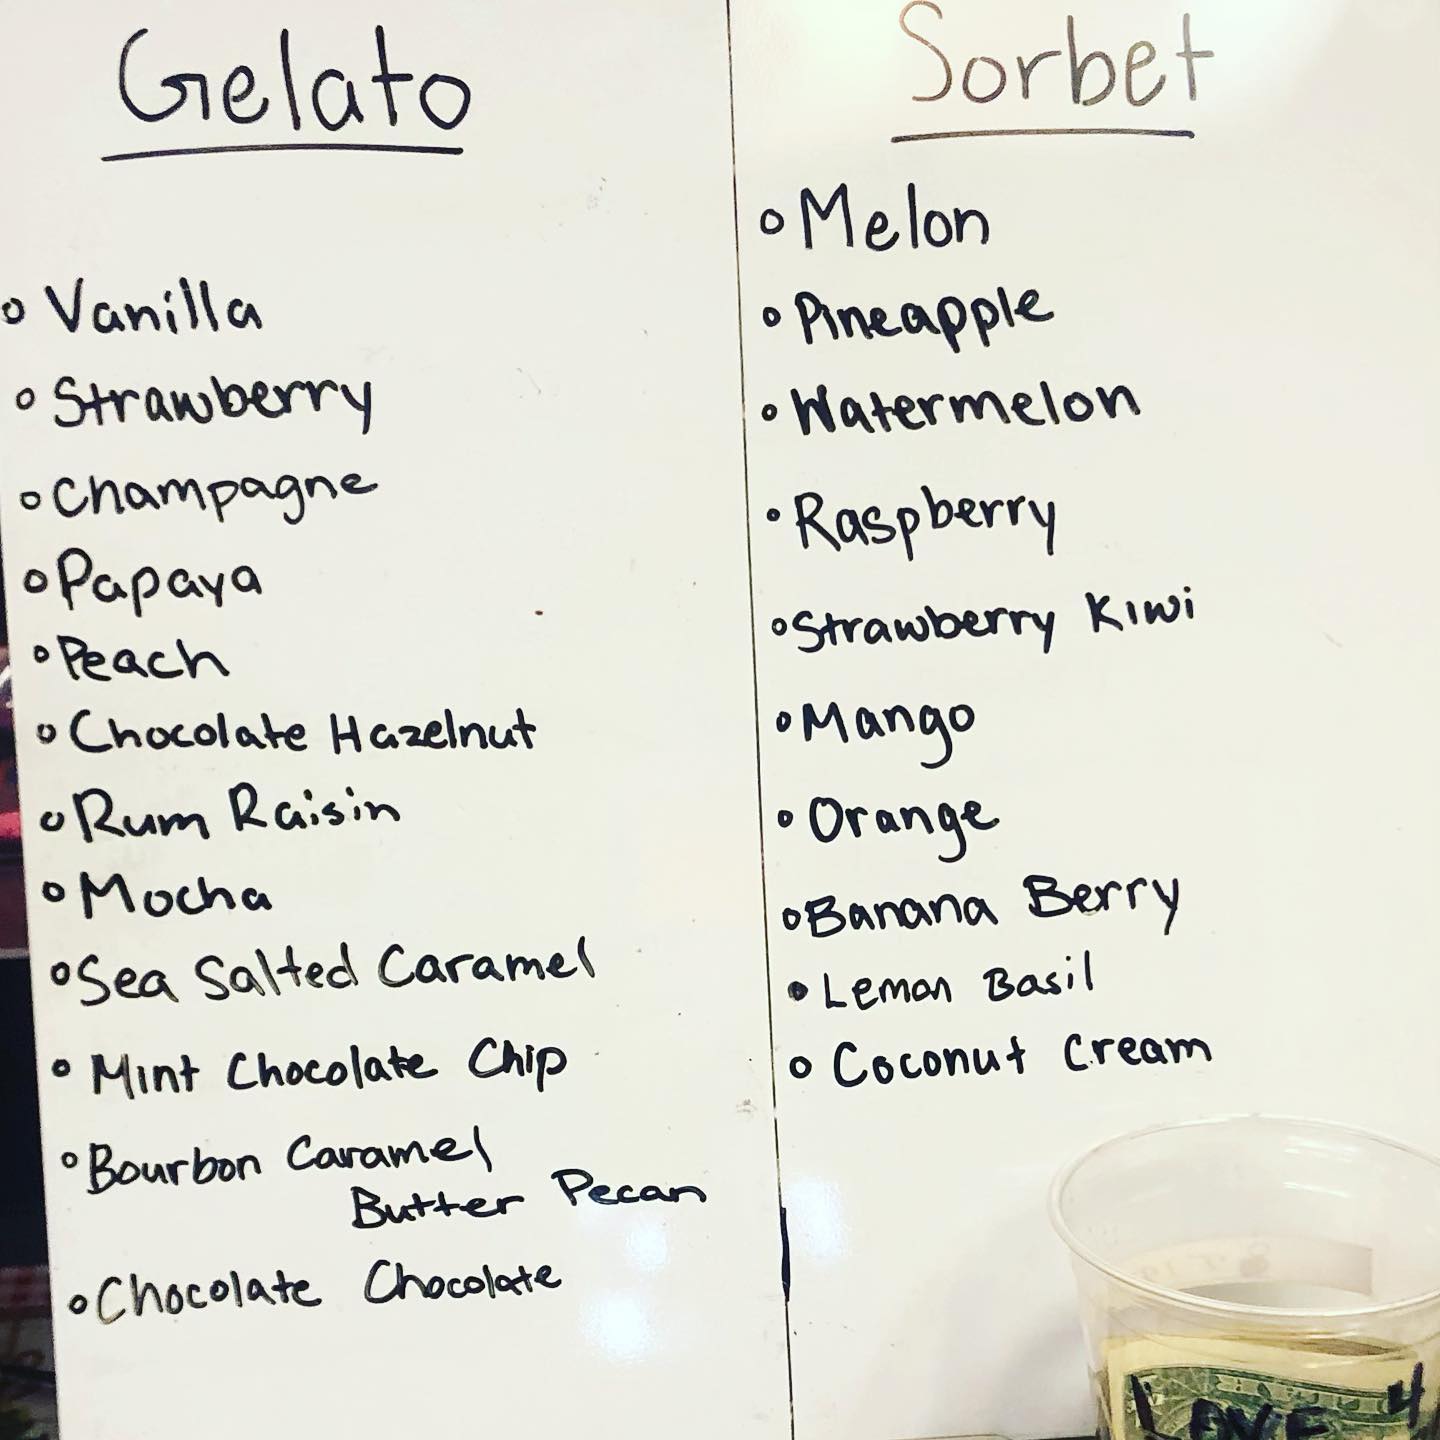 Gelato
Vanilla
Strawberry
Champagne
Papaya
Peach
Chocolate Hazelnut
Rum Raisin
Mocha
Sea Salted Caramel
Mint Chocolate Chip
Bourbon Caramel
Butter Pecan
Chocolate Chocolate
Sorbet
Melon
Pineapple
Watermelon
Raspberry
Strawberry Kiwi
Mango
Orange
Banana Berry
Lemon Basil
Coconut Cream
LOVE 4